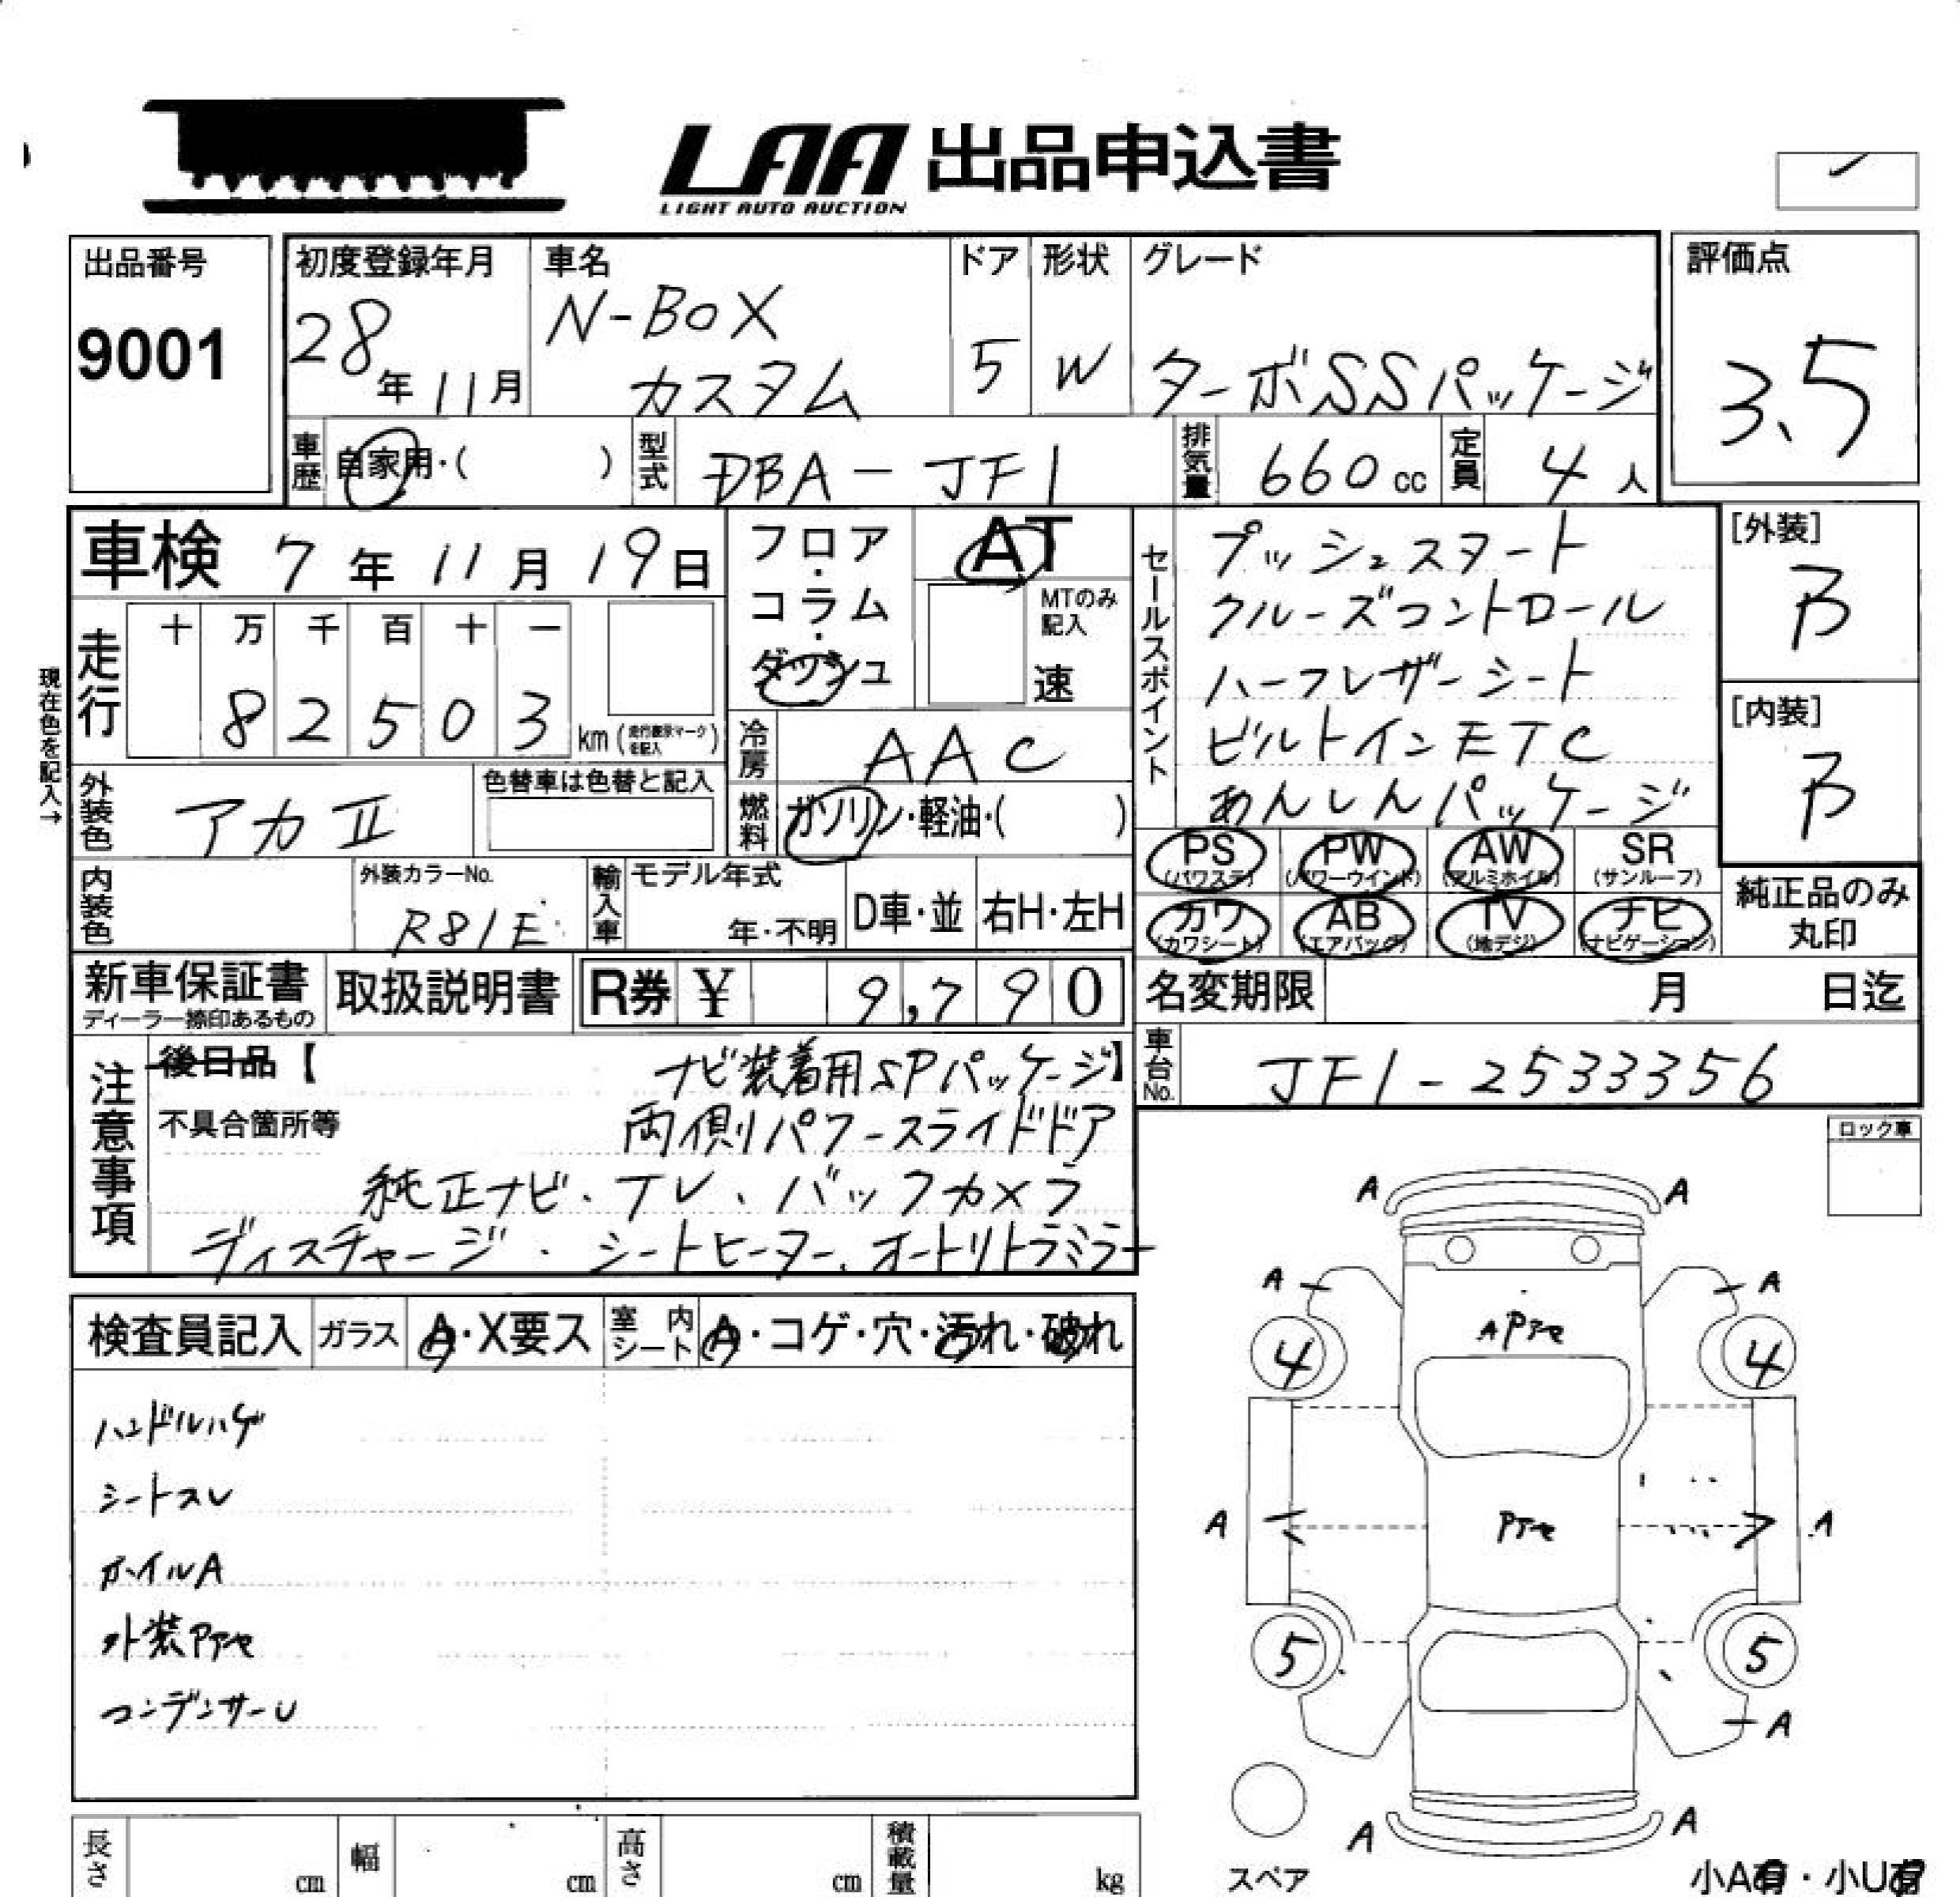 LAA 出品申込書
LIGHT AUTO AUCTION
出品番号
9001
初度登録年月
28年11月
車名
N-BOX
カスタム
ドア
5
形状
W
グレード
ターボSSパッケージ
評価点
3.5
車歴
自家用・( )
型式
DBA-JF1
排気量
660cc
定員
4人
車検 7年11月19日
フロア・コラム・ダッシュ
AT
MTのみ記入
速
セールスポイント
プッシュスタート
クルーズコントロール
ハーフレザーシート
ビルトインETC
あんしんパッケージ
[外装]
B
[内装]
B
現在色を記入→
走行
十 万 千 百 十 一
8 2 5 0 3
km(走行表示マークを記入)
冷房
AAC
外装色
アカII
色替車は色替と記入
燃料
ガソリン・軽油・( )
PS (パワステ)
PW (パワーウインド)
AW (アルミホイル)
SR (サンルーフ)
カワ (カワシート)
AB (エアバッグ)
TV (地デジ)
ナビ (ナビゲーション)
純正品のみ丸印
内装色
外装カラーNo.
R81E
輸入車
モデル年式
年・不明
D車・並
右H・左H
新車保証書
ディーラー捺印あるもの
取扱説明書
R券 ¥ 9,790
名変期限 月 日迄
車台No.
JF1-2533356
注意事項
後日品【 ナビ装着用SPパッケージ】
不具合箇所等 両側パワースライドドア
純正ナビ・TV、バックカメラ
ディスチャージ・シートヒーター、オートリトラミラー
ロック車
検査員記入
ガラス
A・X要ス
室内シート
A・コゲ・穴・汚れ・破れ
ハンドルハゲ
シートスレ
ホイルA
外装Pアセ
コンデンサーU
A A
A A
APアセ
4 4
A Pアセ A
5 5
A
A A
スペア
小A有・小U有
長さ cm
幅 cm
高さ cm
積載量 kg